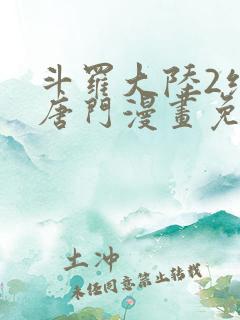 斗羅大陸2
唐門漫畫免
土冲
未任同意禁止转载